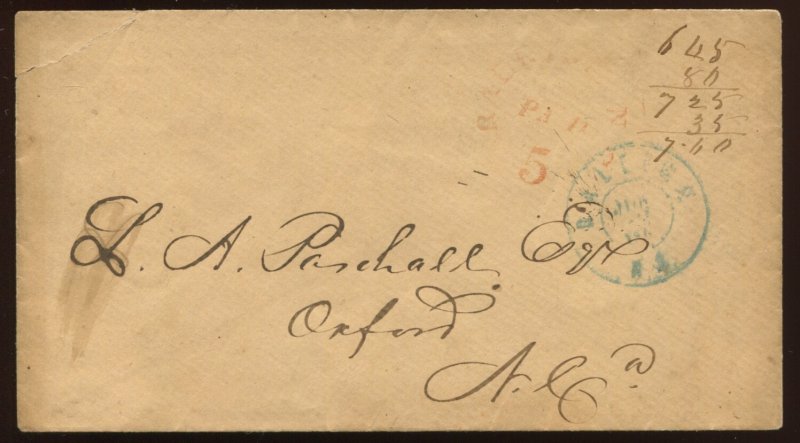 645
80
725
35
7.60
PAID
5
L. A. Paschall Esqr
Oxford
N. Ca